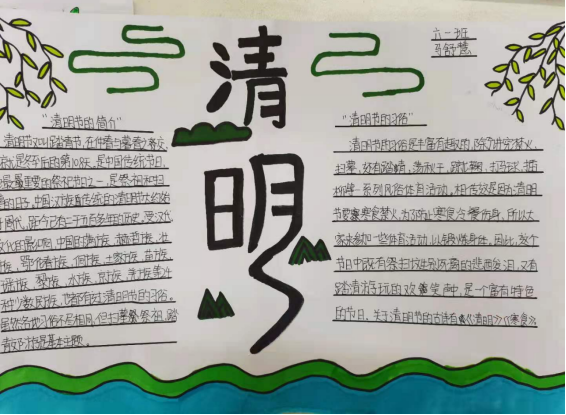 清明
六一班
马舒慧
"清明节的简介"
清明节又叫踏青节,在仲春与暮春之交,
也就是冬至后的第108天,是中国传统节日,
也是最重要的祭祀节日之一,是祭祖和扫
墓的日子。中国汉族传统的清明节大约始
于周代,距今已有二千五百多年的历史。受汉族
文化的影响,中国的满族、赫哲族、壮
族、鄂伦春族、侗族、土家族、苗族、
瑶族、黎族、水族、京族、羌族等
种少数民族,也都有过清明节的习俗。
虽然各地习俗不尽相同,但扫墓祭祖、踏
青郊游是基本主题。
"清明节的习俗"
清明节的习俗是丰富有趣的,除了讲究禁火、
扫墓,还有踏青、荡秋千、蹴鞠、打马球、插
柳等一系列风俗体育活动,相传这是因为清明
节要寒食禁火,为了防止寒食冷餐伤身,所以大
家来参加一些体育活动,以锻炼身体。因此,这个
节日中既有祭扫坟生别死离的悲酸泪,又有
踏青游玩的欢笑声,是个富有特色
的节日,关于清明节的古诗有《清明》《寒食》